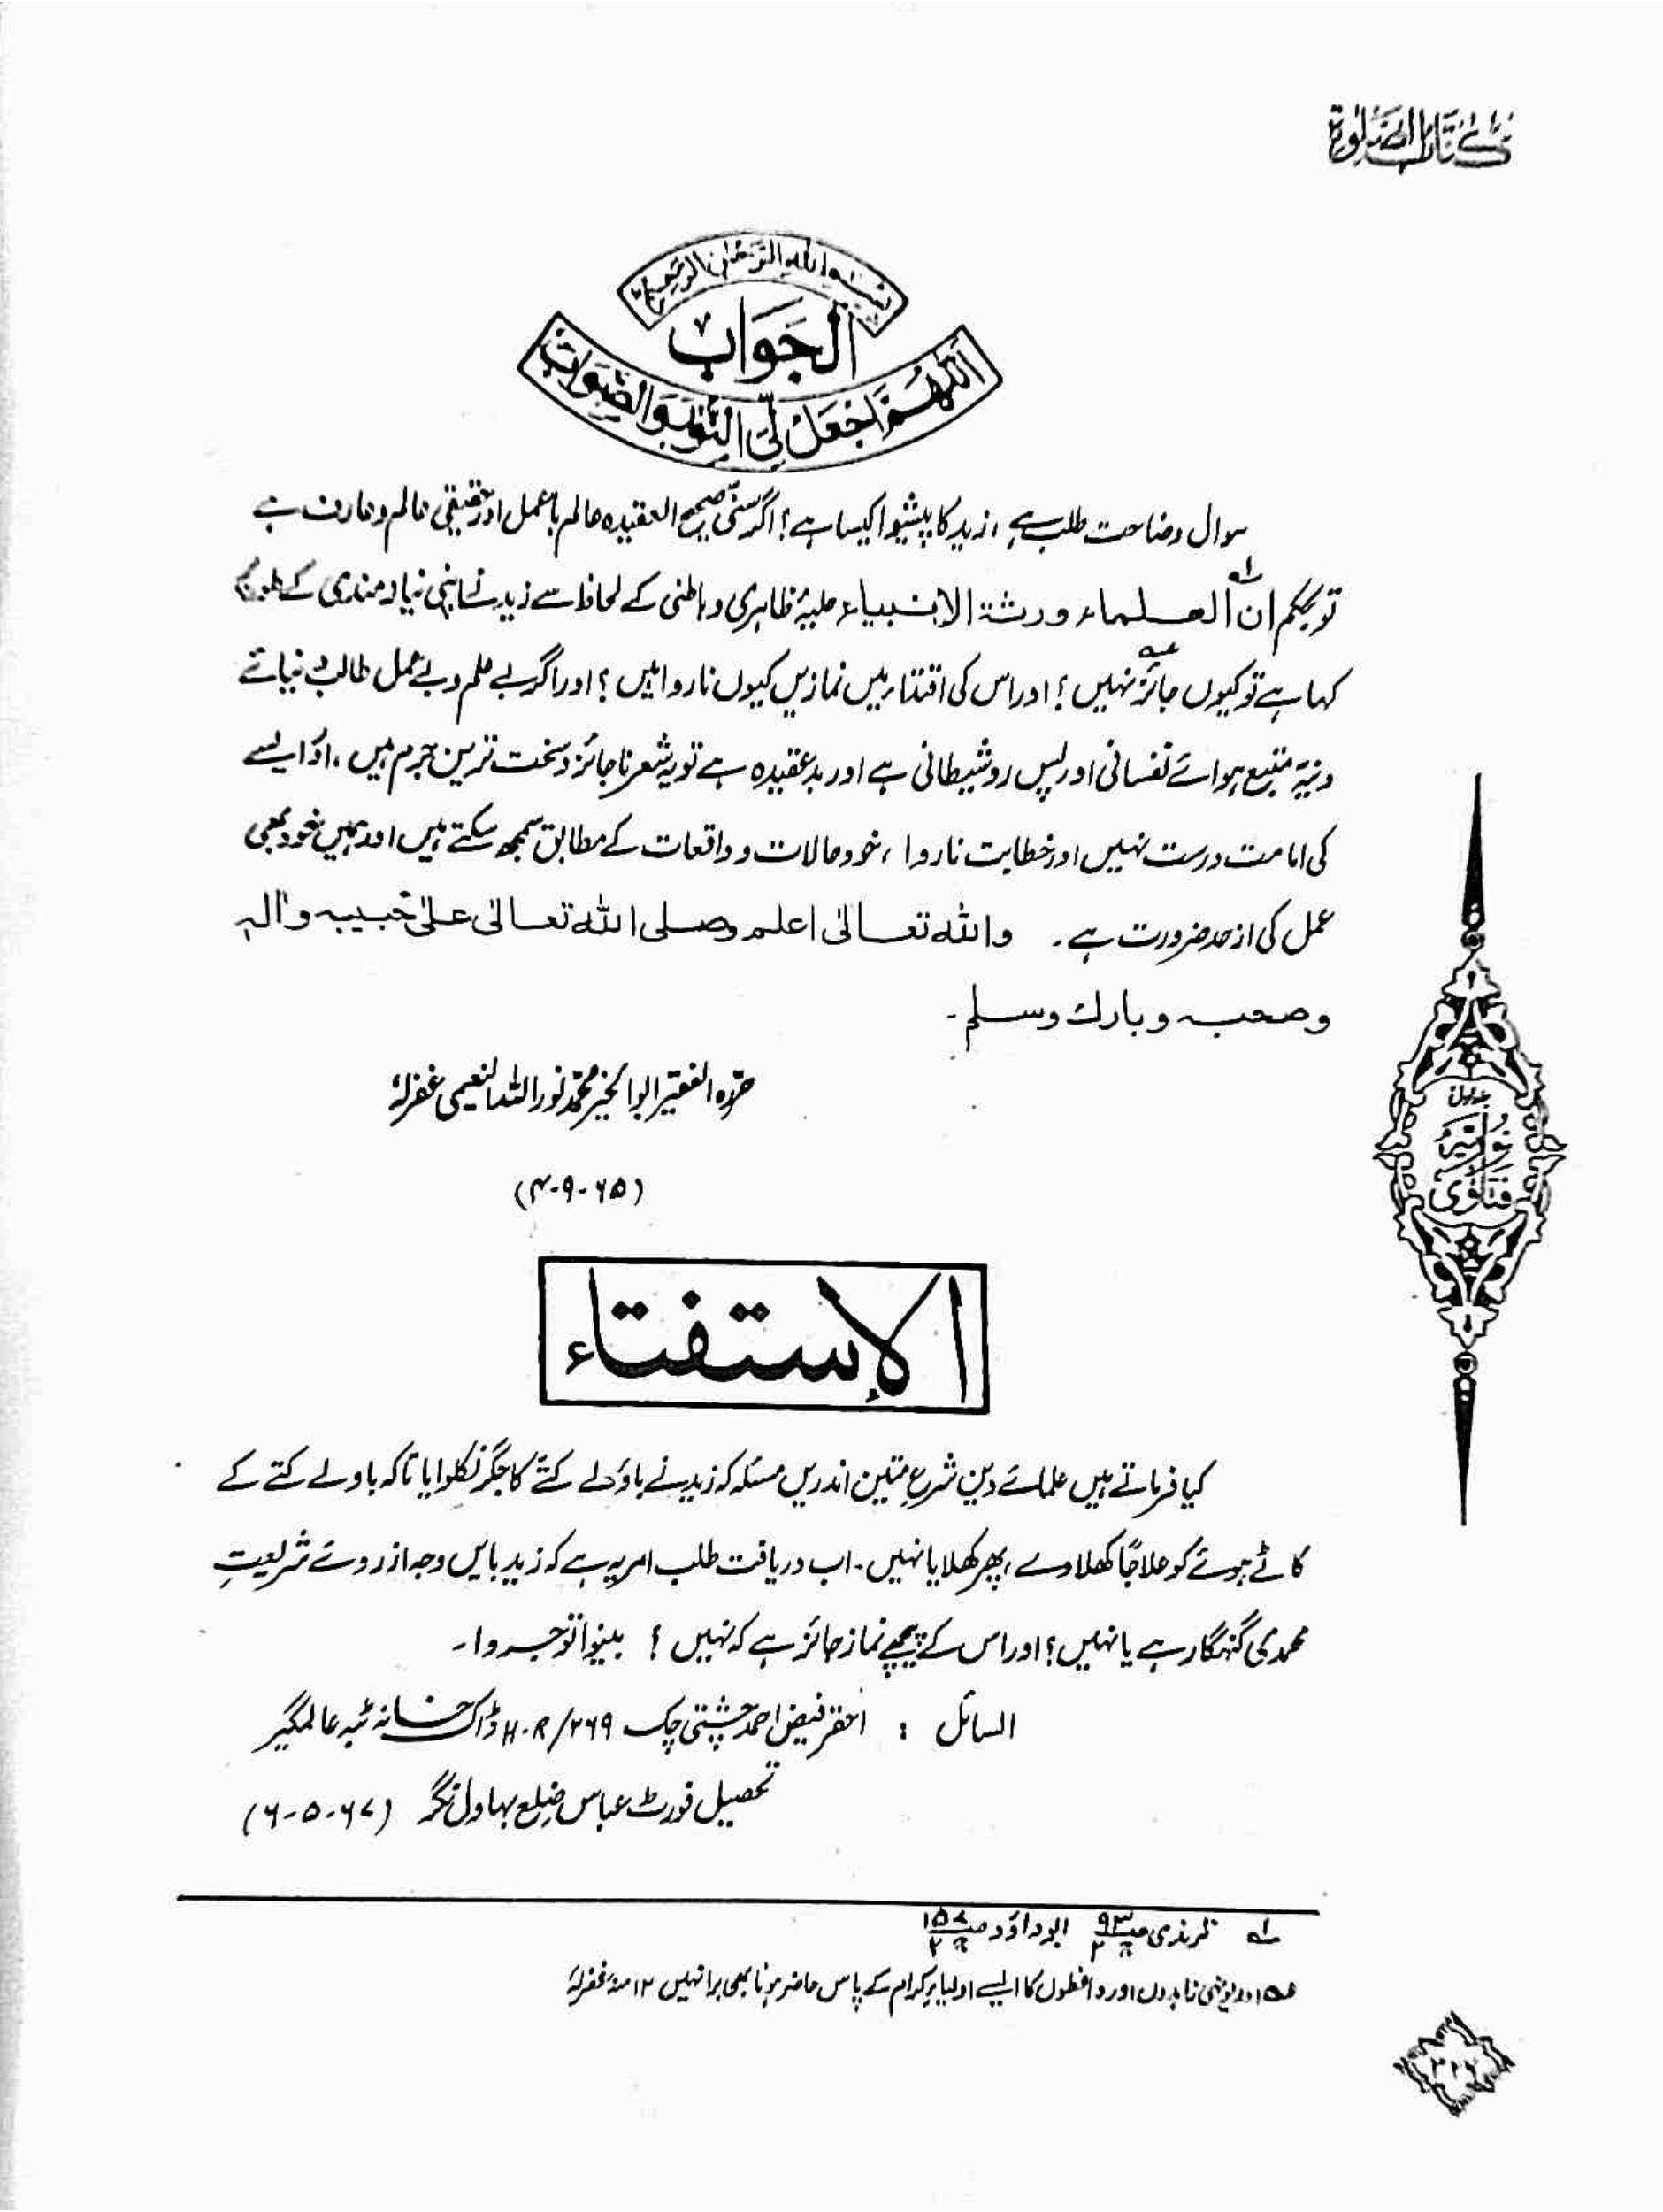 كتاب الصلوة
بسم الله الرحمن الرحيم
الجواب
اللهم اجعل لی النور والصواب
سوال وضاحت طلب ہے ، زید کا پیشوا کیسا ہے ؟ اگر سنی صحیح العقیدہ عالم باعمل اور حقیقی عالم و عارف ہے
تو بحکم ان العلماء ورثة الانبیاء لہ حلیۂ ظاہری و باطنی کے لحاظ سے زید نے اپنی نیازمندی کے طور پر
کہا ہے تو کیوں جائز عہ نہیں ؟ اور اس کی اقتداء میں نمازیں کیوں ناروا ہیں ؟ اور اگر بے علم و بے عمل طالب دنیائے
دنیہ متبع ہوائے نفسانی اور پس رو شیطانی ہے اور بدعقیدہ ہے تو یہ شعر ناجائز و سخت ترین جرم ہیں ، اور ایسے
کی امامت درست نہیں اور خطابت ناروا ، خود حالات و واقعات کے مطابق سمجھ سکتے ہیں اور ہمیں خود بھی
عمل کی از حد ضرورت ہے ۔ واللہ تعالیٰ اعلم وصلی اللہ تعالیٰ علیٰ حبیبہ واٰلہ
وصحبہ وبارك وسلم ۔
حررہ الفقیر ابوالخیر محمد نور اللہ النعیمی غفرلہٗ
(۴-۹-۶۵)
جلد اول
فتاوی نوریہ
الإستفتاء
کیا فرماتے ہیں علمائے دین شرع متین اندریں مسئلہ کہ زید نے باؤلے کتے کا جگر نکلوایا تاکہ باولے کتے کے
کاٹے ہوئے کو علاجًا کھلاوے ، پھر کھلایا نہیں ۔ اب دریافت طلب امر یہ ہے کہ زید بایں وجہ از روئے شریعتِ
محمدی گنہگار ہے یا نہیں ؟ اور اس کے پیچھے نماز جائز ہے کہ نہیں ؟ بینوا توجروا ۔
السائل : احقر فیض احمد چشتی چک ۲۶۹/H.R ڈاک خانہ ٹبہ عالمگیر
تحصیل فورٹ عباس ضلع بہاول نگر (۶-۵-۶۷)
لہ ترمذی ص۹۳ ج۲ ابو داؤد ص۱۵۷ ج۲
عہ اور یونہی اور واعظوں کا ایسے اولیاء کرام کے پاس حاضر ہونا بھی برا نہیں ۱۲ منہ غفرلہٗ